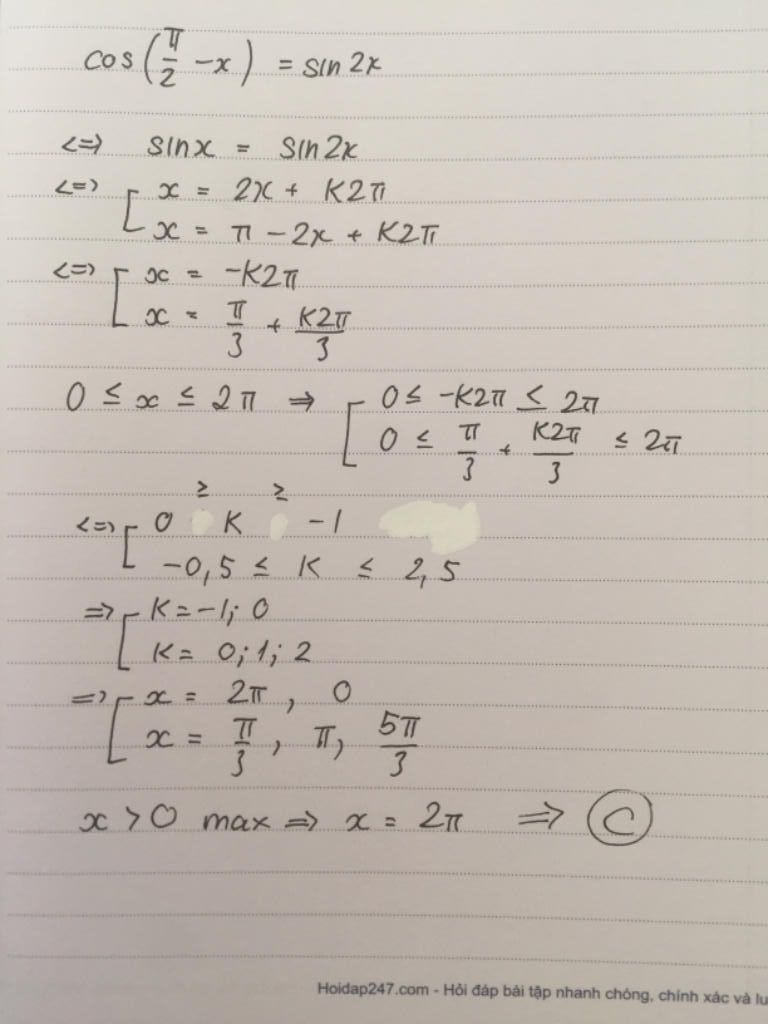 cos(π/2 - x) = sin 2x
<=> sin x = sin 2x
<=> [ x = 2x + K2π
x = π - 2x + K2π
<=> [ x = -K2π
x = π/3 + K2π/3
0 ≤ x ≤ 2π => [ 0 ≤ -K2π ≤ 2π
0 ≤ π/3 + K2π/3 ≤ 2π
<=> [ 0 ≥ K ≥ -1
-0,5 ≤ K ≤ 2,5
=> [ K = -1; 0
K = 0; 1; 2
=> [ x = 2π, 0
x = π/3, π, 5π/3
x > 0 max => x = 2π => C
Hoidap247.com - Hỏi đáp bài tập nhanh chóng, chính xác và lu